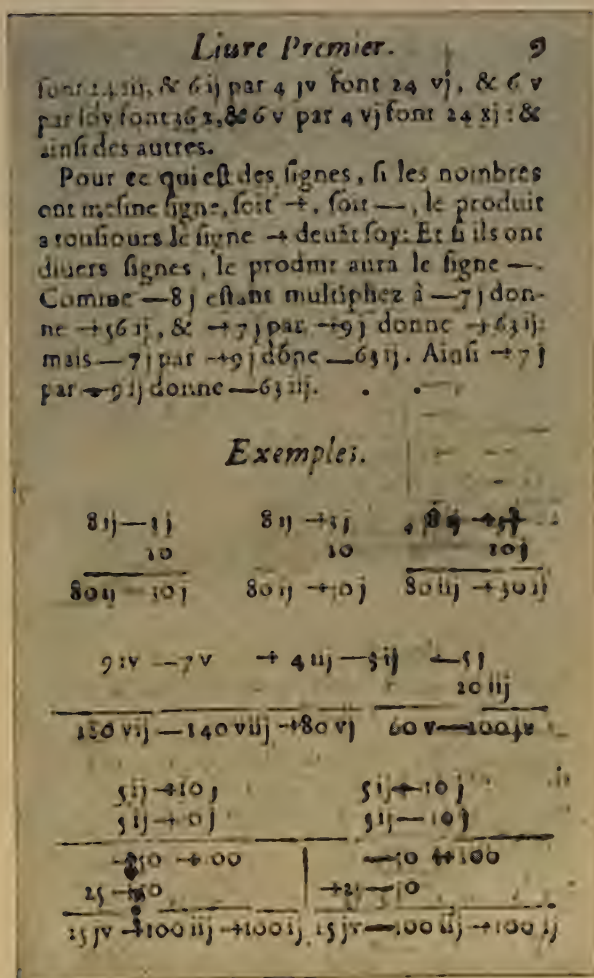 Liure Premier. 9
font 24 iij, & 6 ij par 4 jv font 24 vj, & 6 v
par font 36 x, & 6 v par 4 vj font 24 xj : &
ainsi des autres.
Pour ce qui est des signes, si les nombres
ont mesme signe, soit +, soit —, le produit
a tousiours le signe + deuãt soy: Et si ils ont
diuers signes, le produit aura le signe —.
Comme —8 j estant multipliez à —7 j don-
ne +56 ij, & +7 j par +9 j donne +63 ij:
mais —7 j par +9 j dõne —63 ij. Ainsi +7 j
par 9 ij donne —63 iij.
Exemples.
8 ij — 3 j 8 ij + 3 j 8 ij + 3 j
10 10 10 j
80 ij — 30 j 80 ij + 30 j 80 iij + 30 ij
9 iv — 7 v + 4 iij — 3 ij — 5 j
20 iij
180 vij — 140 viij + 80 vj 60 v — 100 jv
5 ij + 10 j 5 ij + 10 j
5 ij + 10 j 5 ij — 10 j
+ 50 + 100 — 50 + 100
25 + 50 + 25 — 50
25 jv + 100 iij + 100 ij 25 jv — 100 iij + 100 ij